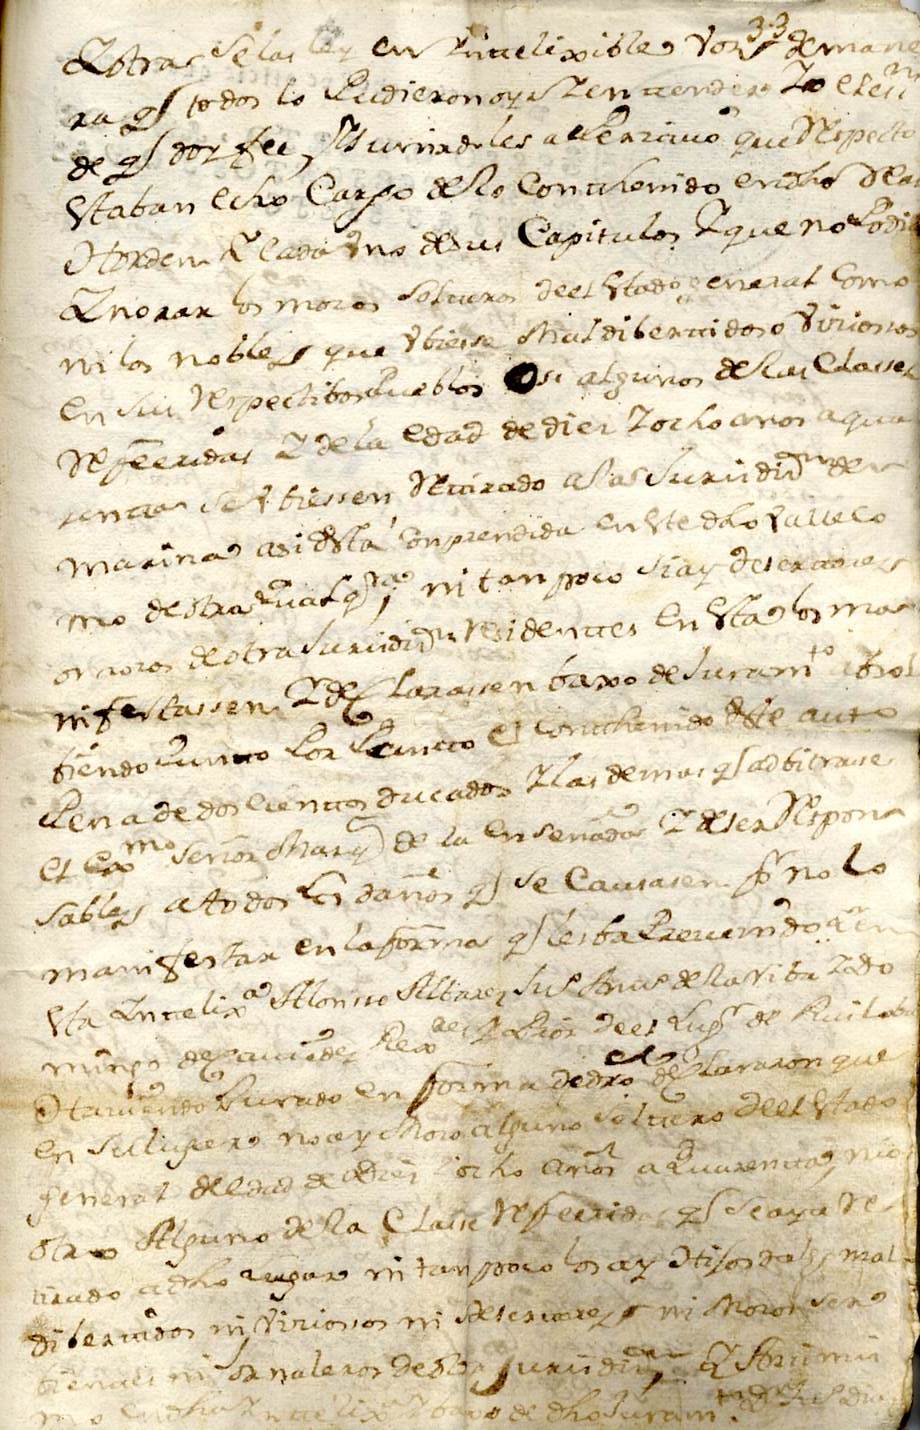 33
Y otras se las ley en Yntelixibles vozs de mane
ra q todos lo Pudieron oyr Y entender Yo el essno
de q doy fee, Y advirtiendoles que Respecto
Estaban echo Cargo de lo Conthenido en dho Real
Horden Y cada Vno de sus Capitulos Y que no Podia
Ynorar los mozos solteros del Estado general Como
ni los nobles que Vbiese Maldibertidos o Viziosos
En sus Respectibos Pueblos O si algunos de las Clases
Referidas Y de la edad de diez Y ocho anos a qua
renta se Vbiessen Retirado a las Jurisdizn de
marina asi Esta Conprendida en Este dho Valle co
mo de otra qualqra, ni tan poco si ay desertores
o mozos de otra Jurisdizn Residentes en Esta los ma
nifestassen Y declarassen baxo de Juramto
Punto Por Punto el Conthenido deste auto
Pena de doscientos ducados Y las demas q adbitrase
el Exmo señor Marqs de la Ensenada Y de ser Respon
sables a todos los daños q se Causasen Pr no lo
manifestar en la forma q les ba Prevenido
Esta Yntelixa Alonso Albarez de la Viba Y do
mingo Rexres Y del Lugr de Ruiloba
Habiendo Jurado en forma de dro declararon que
en su lugar no ay Mozo alguno soltero del Estado
general de Edad de diez Y ocho años a quarenta, ni o
tro Alguno de la Clase Referida q se aya Re
tirado a dho lugar ni tan poco los ay Hijosdalgo mal
dibertidos ni Viziosos ni desertores ni Mozos ser
bientes ni Jornaleros de otra Jurisdizn, Y
mo en dha Yntelixa Y baxo de dho Juramto